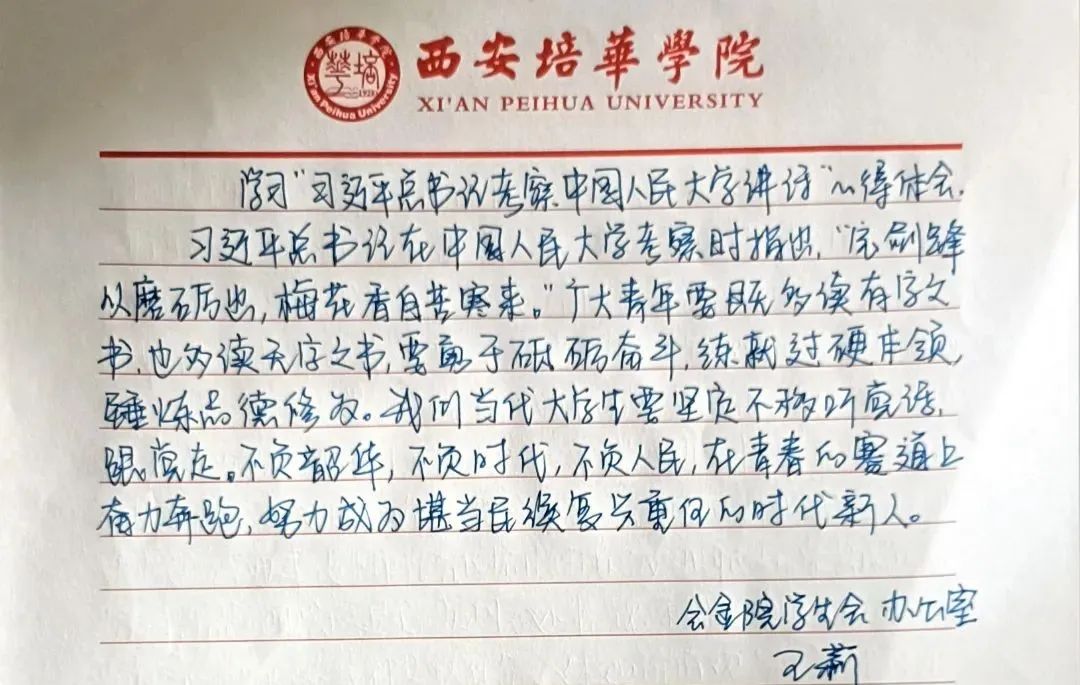 西安培華學院
XI'AN PEIHUA UNIVERSITY
西安培華學院
Xi'an Peihua University
培華
1928
学习“习近平总书记考察中国人民大学讲话”心得体会.
习近平总书记在中国人民大学考察时指出,“宝剑锋
从磨砺出,梅花香自苦寒来。”广大青年要既多读有字之
书,也多读无字之书,要勇于砥砺奋斗,练就过硬本领,
锤炼品德修为。我们当代大学生要坚定不移听党话,
跟党走。不负韶华,不负时代,不负人民,在青春的赛道上
奋力奔跑,努力成为堪当民族复兴重任的时代新人。
会金院学生会 办公室
王莉